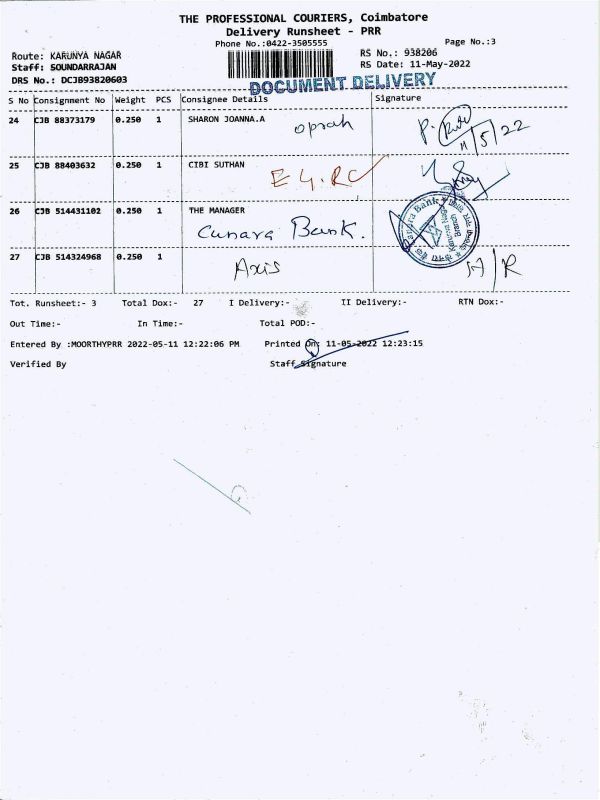 THE PROFESSIONAL COURIERS, Coimbatore
Delivery Runsheet - PRR
Phone No.:0422-3505555
Page No.:3
Route: KARUNYA NAGAR
RS No.: 938206
Staff: SOUNDARRAJAN
RS Date: 11-May-2022
DRS No.: DCJB93820603
DOCUMENT DELIVERY
S No Consignment No Weight PCS Consignee Details Signature
24 CJB 88373179 0.250 1 SHARON JOANNA.A
oprah
11/5/22
25 CJB 88403632 0.250 1 CIBI SUTHAN
26 CJB 514431102 0.250 1 THE MANAGER
Canara Bank.
27 CJB 514324968 0.250 1
Axis
Tot. Runsheet:- 3 Total Dox:- 27 I Delivery:- II Delivery:- RTN Dox:-
Out Time:- In Time:- Total POD:-
Entered By :MOORTHYPRR 2022-05-11 12:22:06 PM Printed On: 11-05-2022 12:23:15
Verified By Staff Signature